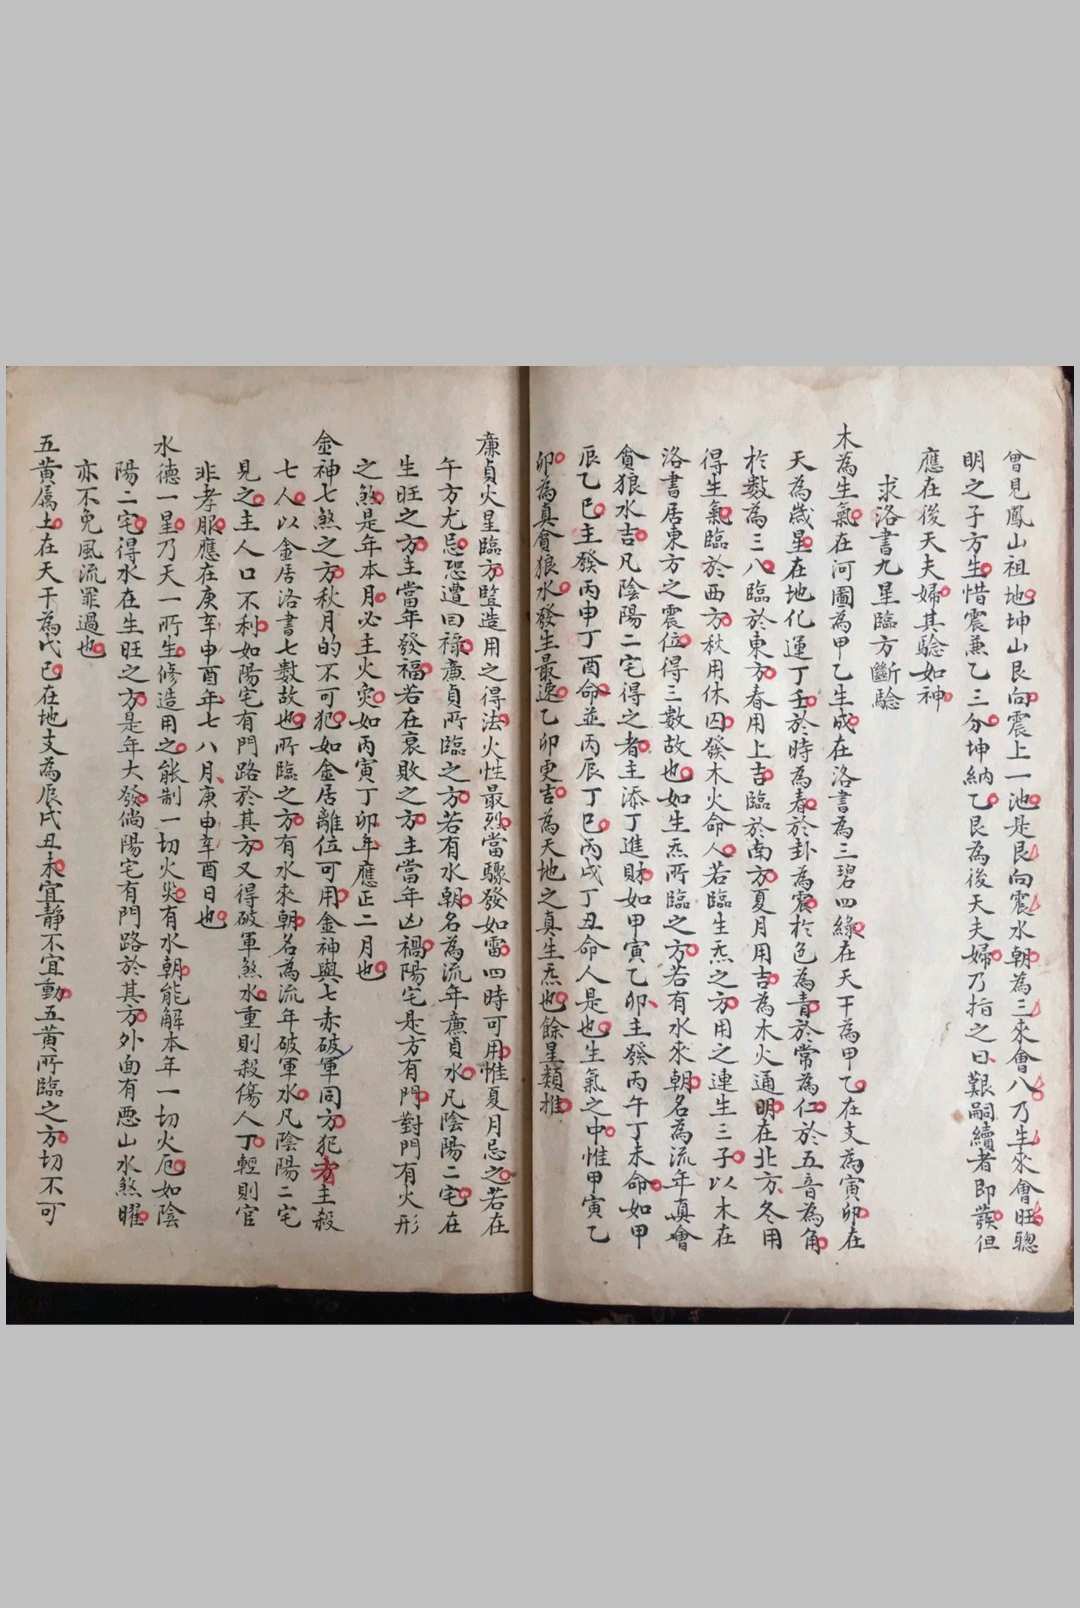 曾見鳳山祖地坤山艮向震上一池是艮向震水朝為三來會八乃生水會旺聰
明之子方生惜震兼乙三分坤納乙艮為後天夫婦乃指之曰艱嗣續者即發但
應在後天夫婦其驗如神
求洛書九星臨方斷驗
木為生氣在河圖為甲乙生成在洛書為三碧四綠在天干為甲乙在支為寅卯在
天為歲星在地化運丁壬於時為春於卦為震於色為青於常為仁於五音為角
於數為三八臨於東方春用上吉臨於南方夏月用吉為木火通明在北方冬用
得生氣臨於西方秋用休囚發木火命人若臨生炁之方用之連生三子以木在
洛書居東方之震位得三數故也如生炁所臨之方若有水來朝名為流年真會
貪狼水吉凡陰陽二宅得之者主添丁進財如甲寅乙卯主發丙午丁未命如甲
辰乙巳主發丙申丁酉命並丙辰丁巳丙戌丁丑命人是也生氣之中惟甲寅乙
卯為真貪狼水發生最速乙卯更吉為天地之真生炁也餘星類推
廉貞火星臨方豎造用之得法火性最烈當驟發如雷四時可用惟夏月忌之若在
午方尤忌恐遭回祿廉貞所臨之方若有水朝名為流年廉貞水凡陰陽二宅在
生旺之方主當年發福若在衰敗之方主當年凶禍陽宅是方有門對門有火形
之煞是年本月必主火災如丙寅丁卯年應正二月也
金神七煞之方秋月的不可犯如金居離位可用金神與七赤破軍同方犯者主殺
七人以金居洛書七數故也所臨之方有水來朝名為流年破軍水凡陰陽二宅
見之主人口不利如陽宅有門路於其方又得破軍煞水重則殺傷人丁輕則官
非孝服應在庚辛申酉年七八月庚申辛酉日也
水德一星乃天一所生修造用之能制一切火災有水朝能解本年一切火厄如陰
陽二宅得水在生旺之方是年大發倘陽宅有門路於其方外面有惡山水煞曜
亦不免風流罪過也
五黃屬土在天干為戊己在地支為辰戌丑未宜靜不宜動五黃所臨之方切不可